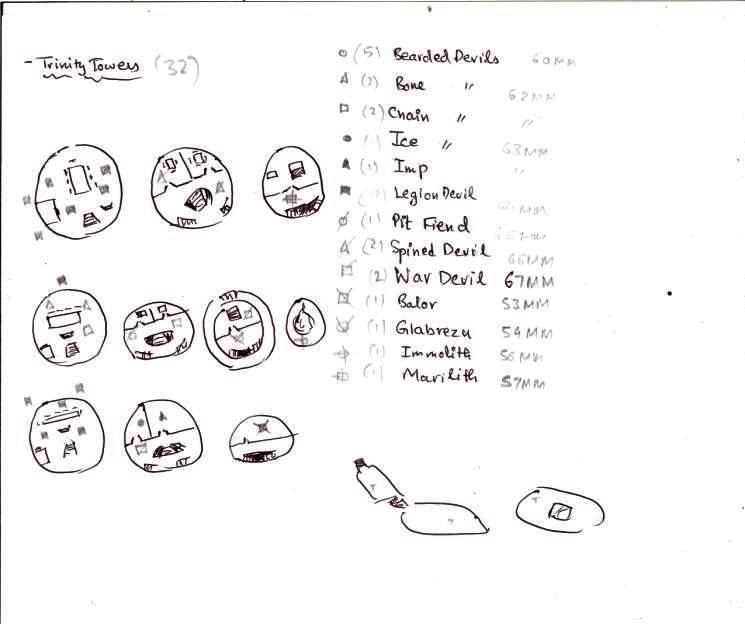 - Trinity Towers (32)
(5) Bearded Devils 60MM
(2) Bone " 62MM
(2) Chain " "
Ice " 63MM
(1) Imp "
Legion Devil
(1) Pit Fiend
(2) Spined Devil 66MM
(2) War Devil 67MM
(1) Balor 53MM
(1) Glabrezu 54MM
(1) Immolith 56MM
(1) Marilith 57MM
T
?
T